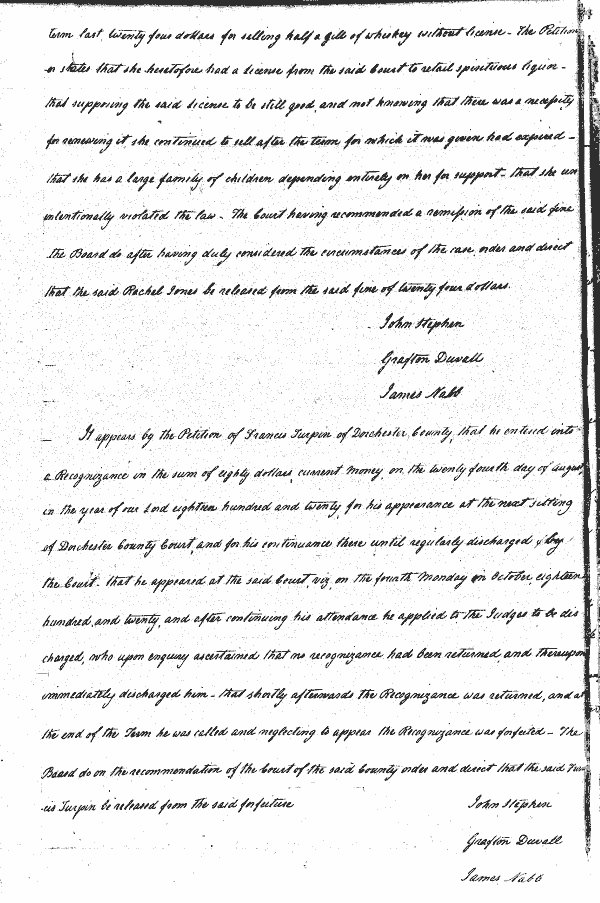 term last, twenty four dollars for selling half a gill of whiskey without license - The Petition
er states that she heretofore had a license from the said Court to retail spirituous liquor -
that supposing the said license to be still good, and not knowing that there was a necessity
for renewing it, she continued to sell after the term for which it was given had expired -
that she has a large family of children depending entirely on her for support - that she un
intentionally violated the law - The Court having recommended a remission of the said fine
the Board do after having duly considered the circumstances of the case, order and direct
that the said Rachel Jones be released from the said fine of twenty four dollars.
John Stephen
Grafton Duvall
James Nabb
It appears by the Petition of Francis Turpin of Dorchester County, that he entered into
a Recognizance in the sum of eighty dollars, current money, on the twenty fourth day of august,
in the year of our Lord eighteen hundred and twenty, for his appearance at the next sitting
of Dorchester County Court, and for his continuance there until regularly discharged by
the Court - that he appeared at the said Court, viz, on the fourth Monday in October eighteen
hundred, and twenty, and after continuing his attendance he applied to the Judges to be dis
charged, who upon enquiry ascertained that no recognizance had been returned, and thereupon
immediately discharged him - that shortly afterwards the Recognizance was returned, and at
the end of the Term he was called and neglecting to appear the Recognizance was forfeited - The
Board do on the recommendation of the Court of the said County order and direct that the said Fran
cis Turpin be released from the said forfeiture
John Stephen
Grafton Duvall
James Nabb